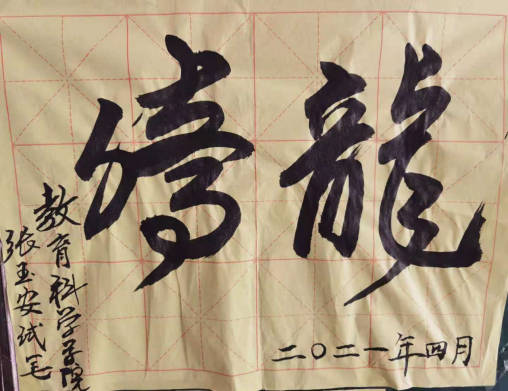 龍騰
二〇二一年四月
教育科学学院
张玉安试毛